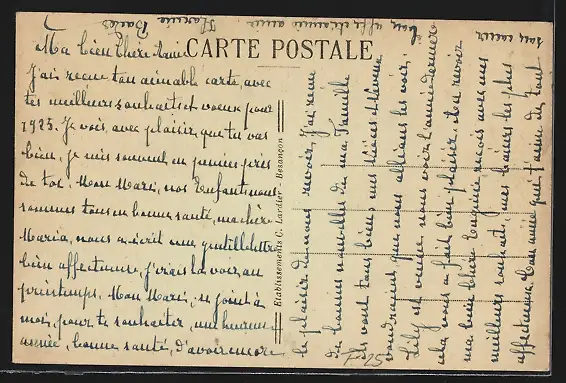 CARTE POSTALE
Ma bien chere Amie
J'ai recue ton aimable carte, avec
tes meilleurs souhaits et voeux pour
1925. Je vois, avec plaisir, que tu vas
bien, je suis souvent en pensée près
de toi. Mon Mari, nos Enfants nous
sommes tous en bonne santé, ma chère
Maria, nous a écrit une gentille lettre
bien affectueuse, j'irais la voir, au
printemps. Mon Mari, se joint à
moi, pour te souhaiter, une heureuse
année, bonne santé, d'avoir encore
le plaisir de nous revoir, J'ai recue
de bonnes nouvelles de ma Famille
ils vont tous bien, mes nièces et neveux
voudraient, que nous allions les voir,
Lily est venue, nous voir l'année dernière
cela nous a fait bien plaisir, de la revoir
ma bien chere reçois avec mes
meilleurs souhaits, mes baisers les plus
affectueux, ton amie qui t'aime de tout
son coeur
ton affectionnée amie
Etablissements C. Lardier - Besançon